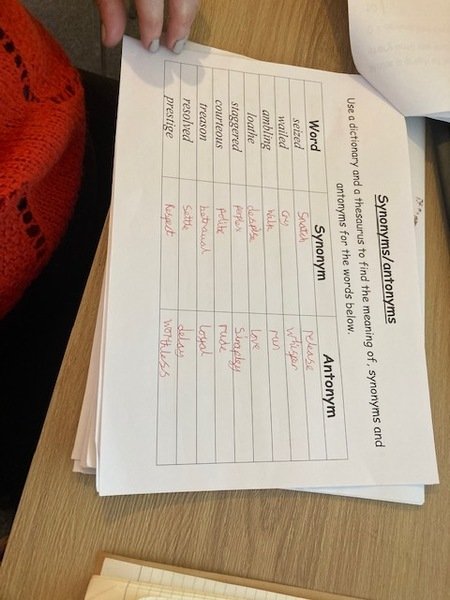 Synonyms/antonyms
Use a dictionary and a thesaurus to find the meaning of, synonyms and
antonyms for the words below.
Word Synonym Antonym
seized Snatch release
wailed Cry whisper
ambling Walk run
loathe despise love
staggered
courteous Polite rude
treason betrayal loyal
resolved Settle delay
prestige Respect worthless